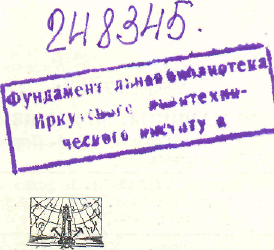 248345.
Фундамент льная библиотека
Иркутского политехни-
ческого институ а